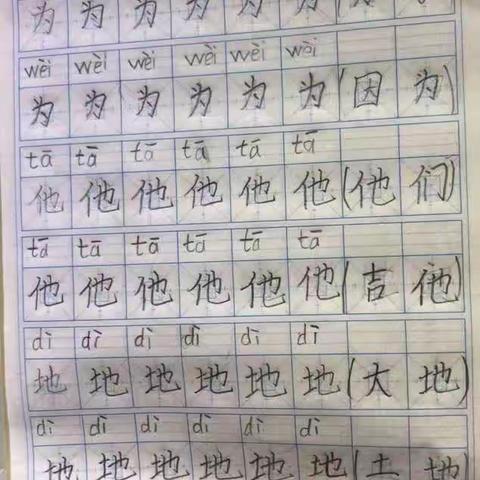 为 为 为 为 为 为 (
wèi wèi wèi wèi wèi wèi
为 为 为 为 为 为 (因 为)
tā tā tā tā tā tā
他 他 他 他 他 他 (他 们)
tā tā tā tā tā tā
他 他 他 他 他 他 (吉 他)
dì dì dì dì dì dì
地 地 地 地 地 地 (大 地)
dì dì dì dì dì dì
地 地 地 地 地 地 (土 地)